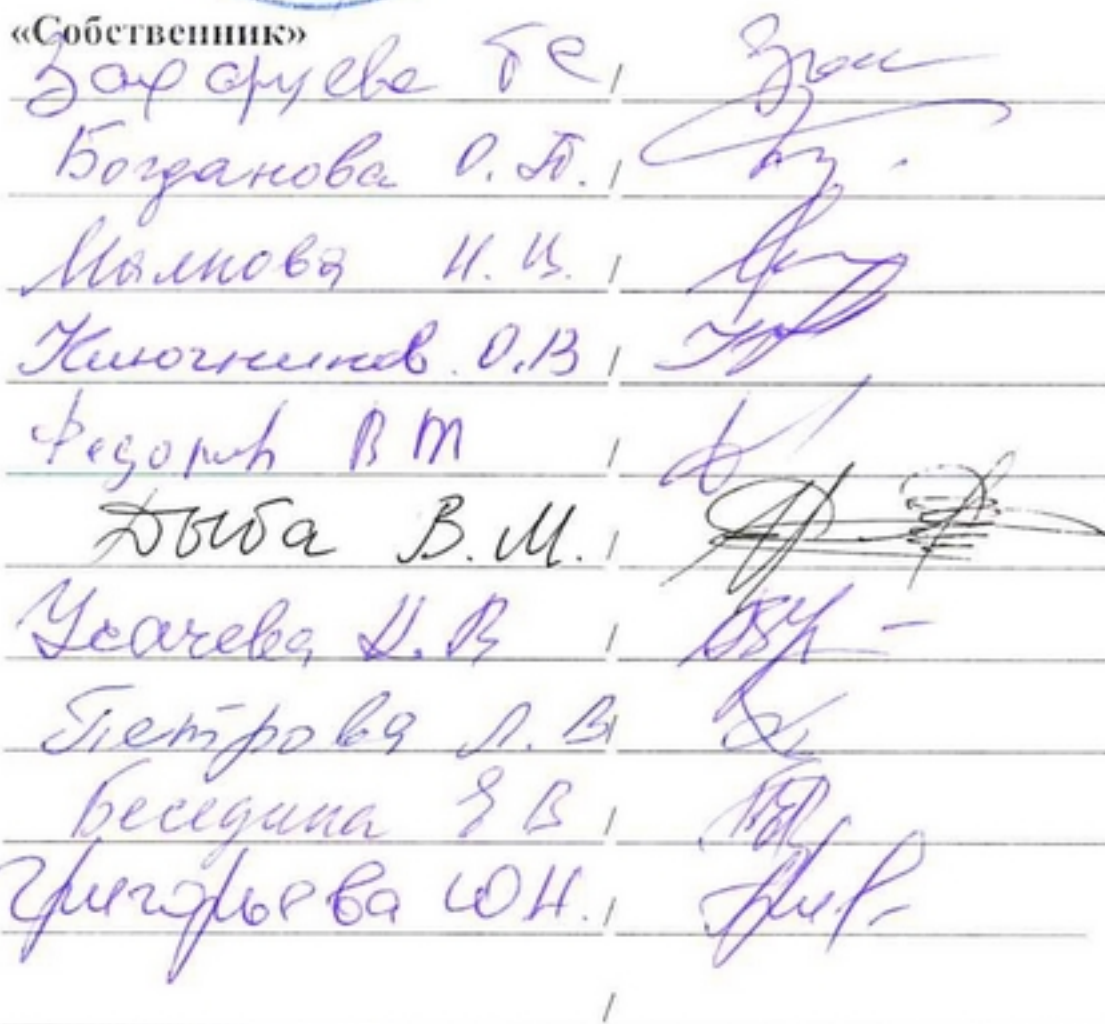 «Собственник»
Г С /
Богданова О. П. /
Малкова Н. И. /
Ключников О.В /
Федорив В М /
Дыба В.М. /
Усачева Н. В /
Петрова Л. В /
Беседина Е В /
Григорьева Ю Н. /
/